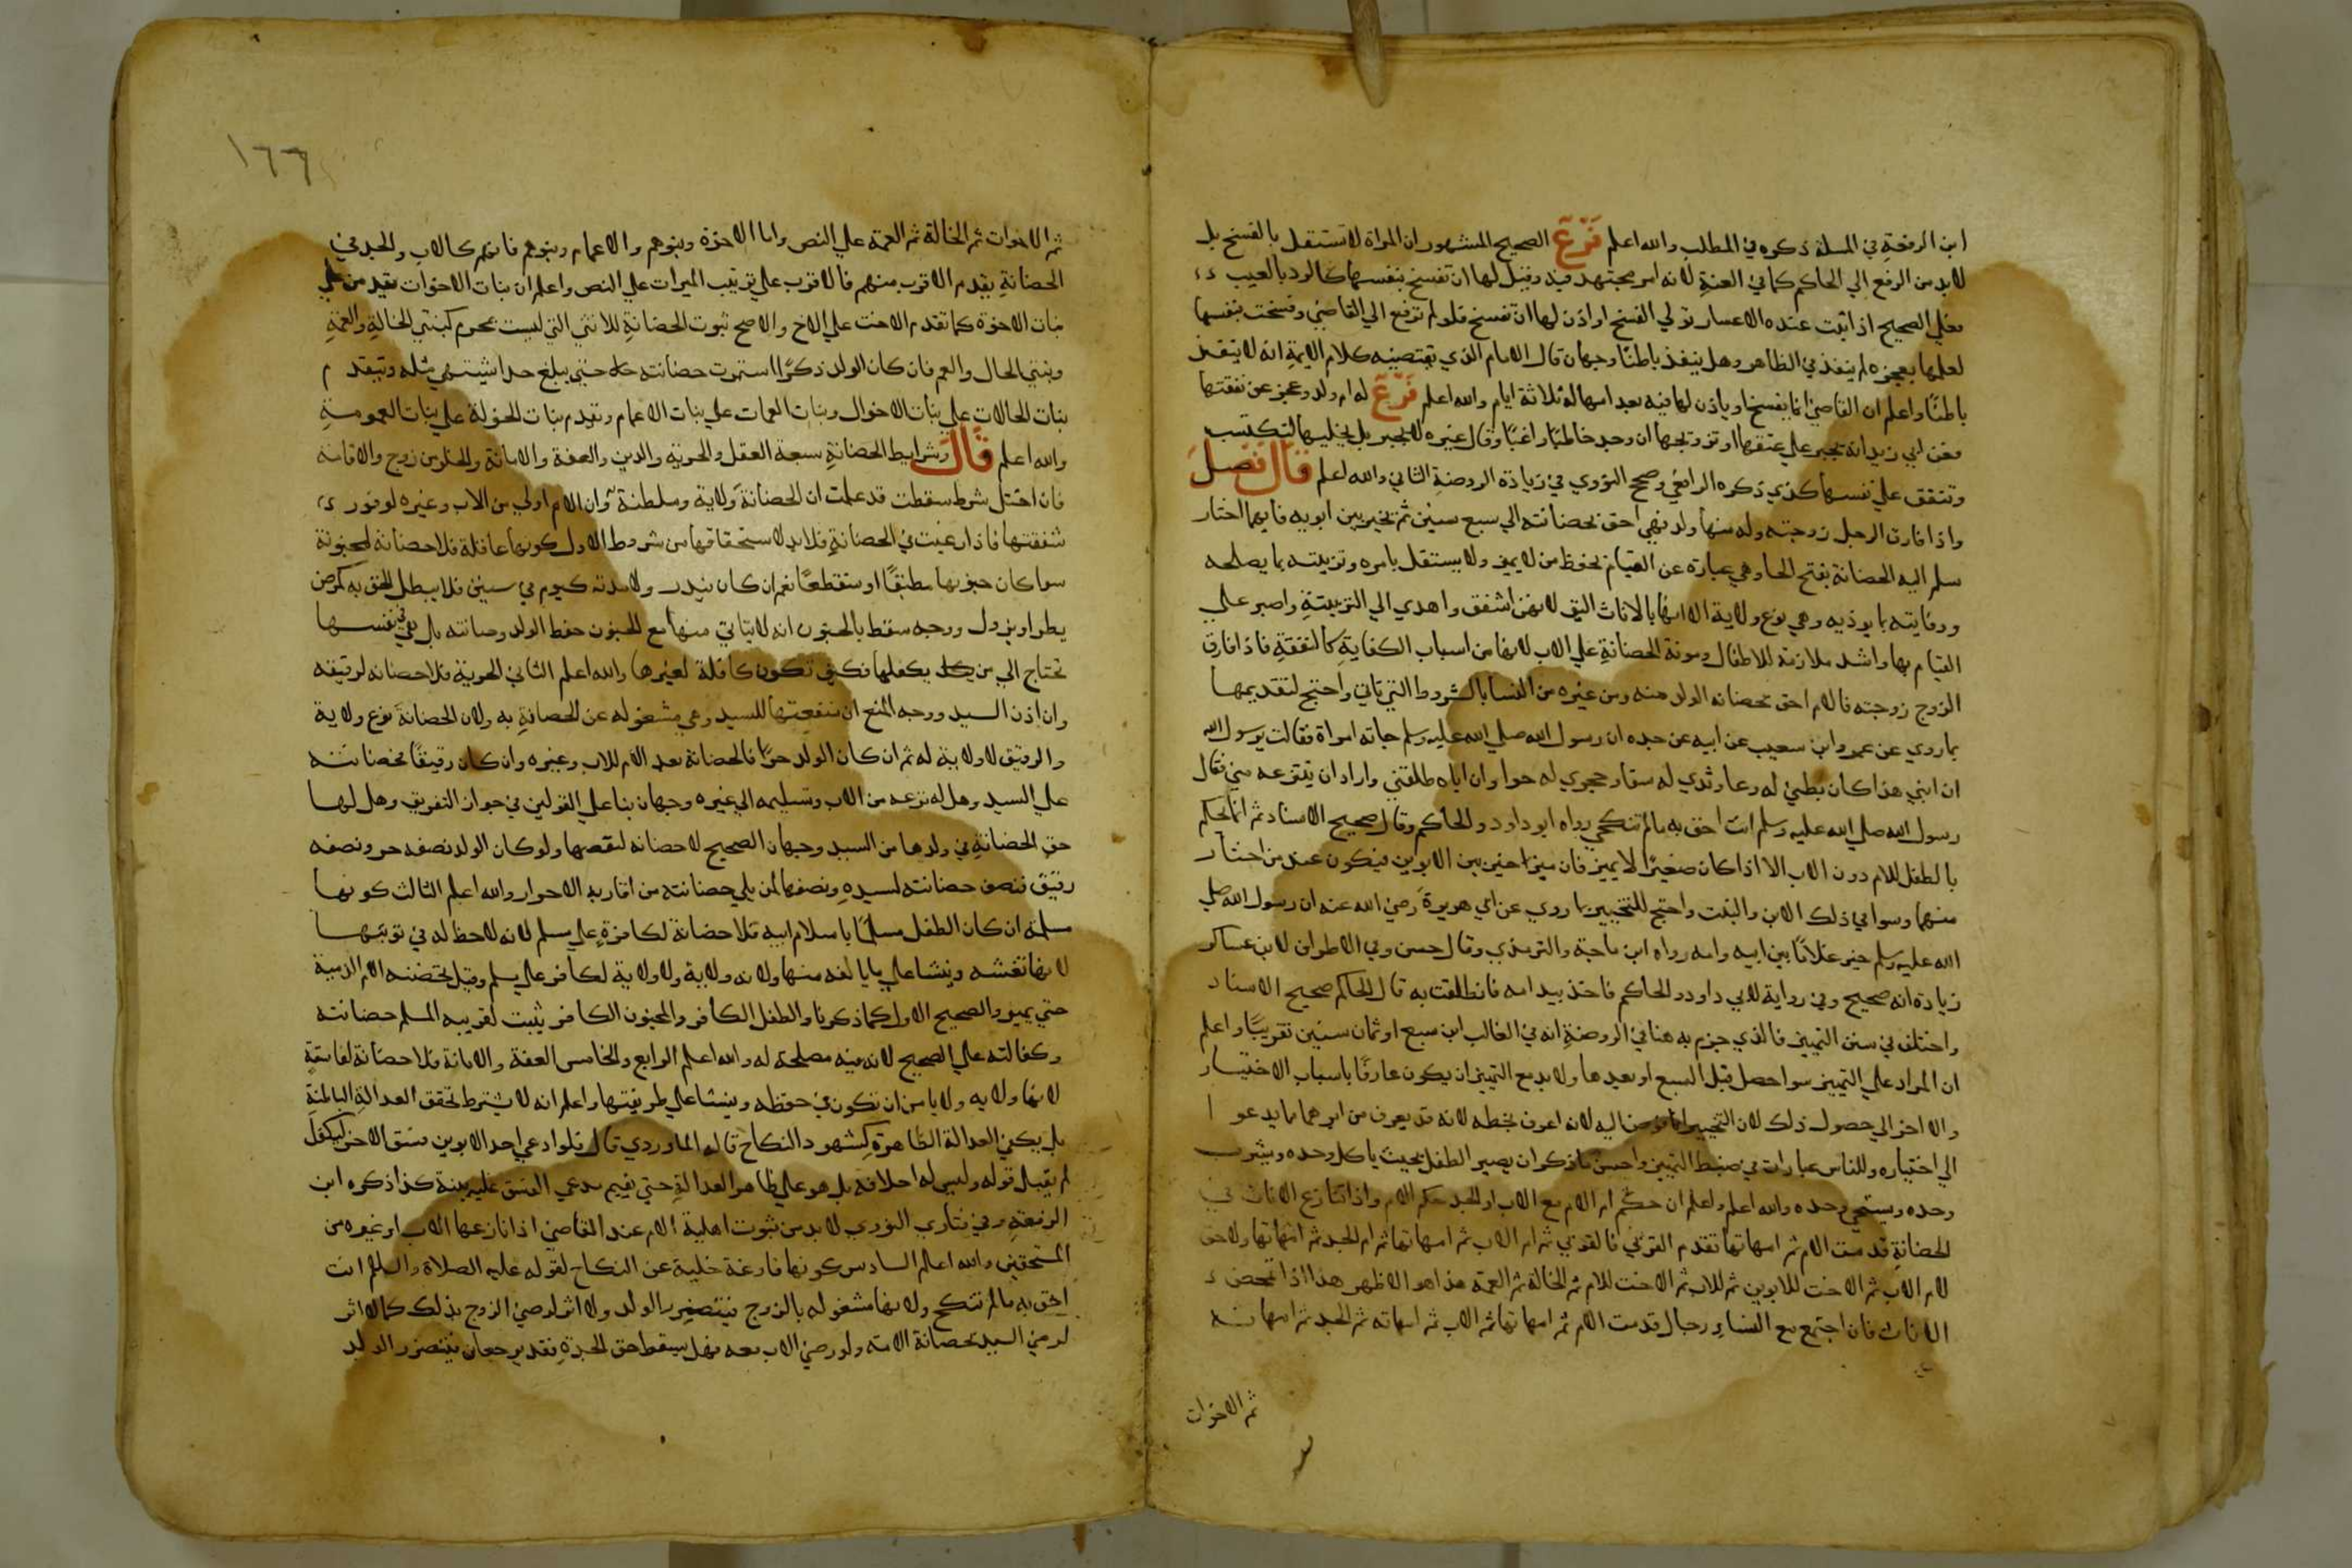 ابن الرفعة في المسلة ذكره في المطلب والله اعلم فرع الصحيح المشهور ان المراة لا تستقل بالفسخ بل
لابد من الرفع الي الحاكم كما في العنة لانه امر مجتهد فيه وقيل لها ان تفسخ بنفسها كالرد بالعيب
فعلي الصحيح اذا ثبت عنده الاعسار تولي الفسخ او اذن لها ان تفسخ فلو لم ترفع الي القاضي وفسخت بنفسها
لعلمها بعجزه لم ينفذ في الظاهر وهل ينفذ باطنا وجهان قال الامام الذي يقتضيه كلام الايمة انه لا ينفذ
باطنا واعلم ان القاضي انما يفسخ او ياذن لها فيه بعد امهاله ثلاثة ايام والله اعلم فرع له ام ولد وعجز عن نفقتها
فعن ابي زيد انه يجبر علي عتقها او تزويجها ان وجد خاطبا راغبا وقال غيره لا يجبر بل يخليها لتكتسب
وتنفق علي نفسها كذي ذكره الرافعي وصحح النووي في زيادة الروضة الثاني والله اعلم قال فصل
واذا فارق الرجل زوجته وله منها ولد فهي احق بحضانته الي سبع سنين ثم يخير بين ابويه فايهما اختار
سلم اليه الحضانة بفتح الحا وهي عبارة عن القيام بحفظ من لا يميز ولا يستقل بامره وتربيته بما يصلحه
ووقايته بما يوذيه وهي نوع ولاية الا انها بالاناث اليق لانهن اشفق واهدي الي التربيتة واصبر علي
القيام بها واشد ملازمة للاطفال ومونة الحضانة علي الاب لانها من اسباب الكفاية كالنفقة فاذا فارق
الزوج زوجته فالام احق بحضانة الولد منه ومن غيره من النسا بالشروط التي تاتي واحتج لتقديمها
بما روي عن عمرو ابن سعيب عن ابيه عن جده ان رسول الله صلي الله عليه وسلم جاته امراة فقالت يرسول الله
ان ابني هذا كان بطني له وعا وثدي له سقا وحجري له حوا وان اباه طلقني واراد ان ينتزعه مني فقال
رسول الله صلي الله عليه وسلم انت احق به مالم تنكحي رواه ابو داود والحاكم وقال صحيح الاسناد ثم انما يحكم
بالطفل للام دون الاب الا اذا كان صغيرا لا يميز فان ميز اخير بين الابوين فيكون عند من اختار
منهما وسوا في ذلك الابن والبنت واحتج للتخيير بما روي عن ابي هريرة رضي الله عنه ان رسول الله صلي
الله عليه وسلم خير غلاما بين ابيه وامه رواه ابن ماجة والترمذي وقال حسن وفي الاطراف لابن عساكر
زيادة انه صحيح وفي رواية لابي داود والحاكم فاخذ بيد امه فانطلقت به قال الحاكم صحيح الاسناد
واختلف في سن التمييز فالذي جزم به هنا في الروضة انه في الغالب ابن سبع او ثمان سنين تقريبا واعلم
ان المراد علي التمييز سوا حصل قبل السبع او بعدها ولابد مع التمييز ان يكون عارفا باسباب الاختيار
والا اخر الي حصول ذلك لان التخيير انما فوضنا اليه لانه اعرف بخطه لانه قد يعرف من ابرهما ما يدعو
الي اختياره وللناس عبارات في ضبط التمييز واحسن ما ذكر ان يصير الطفل بحيث ياكل وحده ويشرب
وحده ويستنجي وحده والله اعلم واعلم ان حكم ام الام مع الاب او الجد حكم الام واذا تنازع الاناث في
الحضانة قدمت الام ثم امهاتها تقدم القربي فالقربي ثم ام الاب ثم امهاتها ثم ام الجد ثم امهاتها ولا حق
لام الاب ثم الاخت للابوين ثم للاب ثم الاخت للام ثم الخالة ثم العمة هذا هو الاظهر هذا اذا تمحض
الاناث فان اجتمع مع النسا رجال قدمت الام ثم امهاتها ثم الاب ثم امهاته ثم الجد ثم امهاته
ثم الاخوات
١٦٦
ثم الاخوات ثم الخالة ثم العمة علي النص واما الاخوة وبنوهم والاعمام وبنوهم فانهم كالاب والجد في
الحضانة يقدم الاقرب منهم فالاقرب علي ترتيب الميراث علي النص واعلم ان بنات الاخوات يقدمن علي
بنات الاخوة كما تقدم الاخت علي الاخ والاصح ثبوت الحضانة للانثي التي ليست بمحرم كبنتي الخالة والعمة
وبنتي الخال والعم فان كان الولد ذكرا استمرت حضانته حتي يبلغ حدا يشتهي مثله ويقدم
بنات الخالات علي بنات الاخوال وبنات العمات علي بنات الاعمام ويقدم بنات الخولة علي بنات العمومة
والله اعلم قال وشرايط الحضانة سبعة العقل والحرية والدين والعفة والامانة والخلو من زوج والاقامة
فان اختل شرط سقطت قد علمت ان الحضانة ولاية وسلطنة وان الام اولي من الاب وغيره لوفور
شفقتها فاذا رغبت في الحضانة فلابد لاستحقاقها من شروط الاول كونها عاقلة فلا حضانة لمجنونة
سوا كان جنونها مطبقا او منقطعا نعم ان كان يندر ولا مدته كيوم في سنين فلا يبطل الحق به كمرض
يطرا ويزول ووجه سقط بالجنون انه لا يتاتي منها مع الجنون حفظ الولد وصيانته بل هي في نفسها
تحتاج الي من يكفلها فكيف تكون كافلة لغيرها والله اعلم الثاني الحرية فلا حضانة لرقيقه
وان اذن السيد ووجه المنع ان منفعتها للسيد وهي مشغوله عن الحضانة به ولان الحضانة نوع ولاية
والرقيق لا ولاية له ثم ان كان الولد حرا فالحضانة بعد الام للاب وغيره وان كان رقيقا فحضانته
علي السيد وهل له نزعه من الاب وتسليمه الي غيره وجهان بنا علي القولين في جواز التفريق وهل لها
حق الحضانة في ولدها من السيد وجهان الصحيح لا حضانه لنقصها ولو كان الولد نصفه حر ونصفه
رقيق فنصف حضانته لسيده ونصفها لمن يلي حضانته من اقاربه الاحرار والله اعلم الثالث كونها
مسلمة ان كان الطفل مسلما باسلام ابيه فلا حضانة لكافرة علي مسلم لانه لا حظ له في تربيتها
لانها تفتنه وينشا علي ما يالفه منها ولانه ولاية ولا ولاية لكافر علي مسلم وقيل تحضنه الام الذمية
حتي يميز والصحيح الاول كما ذكرنا والطفل الكافر والمجنون الكافر يثبت لقريبه المسلم حضانته
وكفالته علي الصحيح لانه فيه مصلحة له والله اعلم الرابع والخامس العفة والامانة فلا حضانة لفاسقة
لانها ولايه ولا يامن ان تخون في حفظه وينشا علي طريقتها واعلم انه لا يشترط تحقق العدالة الباطنة
بل يكفي العدالة الظاهرة كشهود النكاح قاله الماوردي قال فلو ادعي احد الابوين فسق الاخر ليكفل
لم يقبل قوله وليس له احلافه بل هو علي ظاهر العدالة حتي يقيم مدعي الفسق عليه بينة كذا ذكره ابن
الرفعة وفي فتاوي النووي لابد من ثبوت اهلية الام عند القاضي اذا نازعها الاب او غيره من
المستحقين والله اعلم السادس كونها فارغة خلية عن النكاح لقوله عليه الصلاة والسلم انت
احق به مالم تنكحي ولانها مشغوله بالزوج فيتضرر الولد ولا اثر لرضي الزوج بذلك كما لا اثر
لرضي السيد بحضانة الامة ولو رضي الاب معه فهل يسقط حق الجدة فقد يرجعان فيتضرر الولد